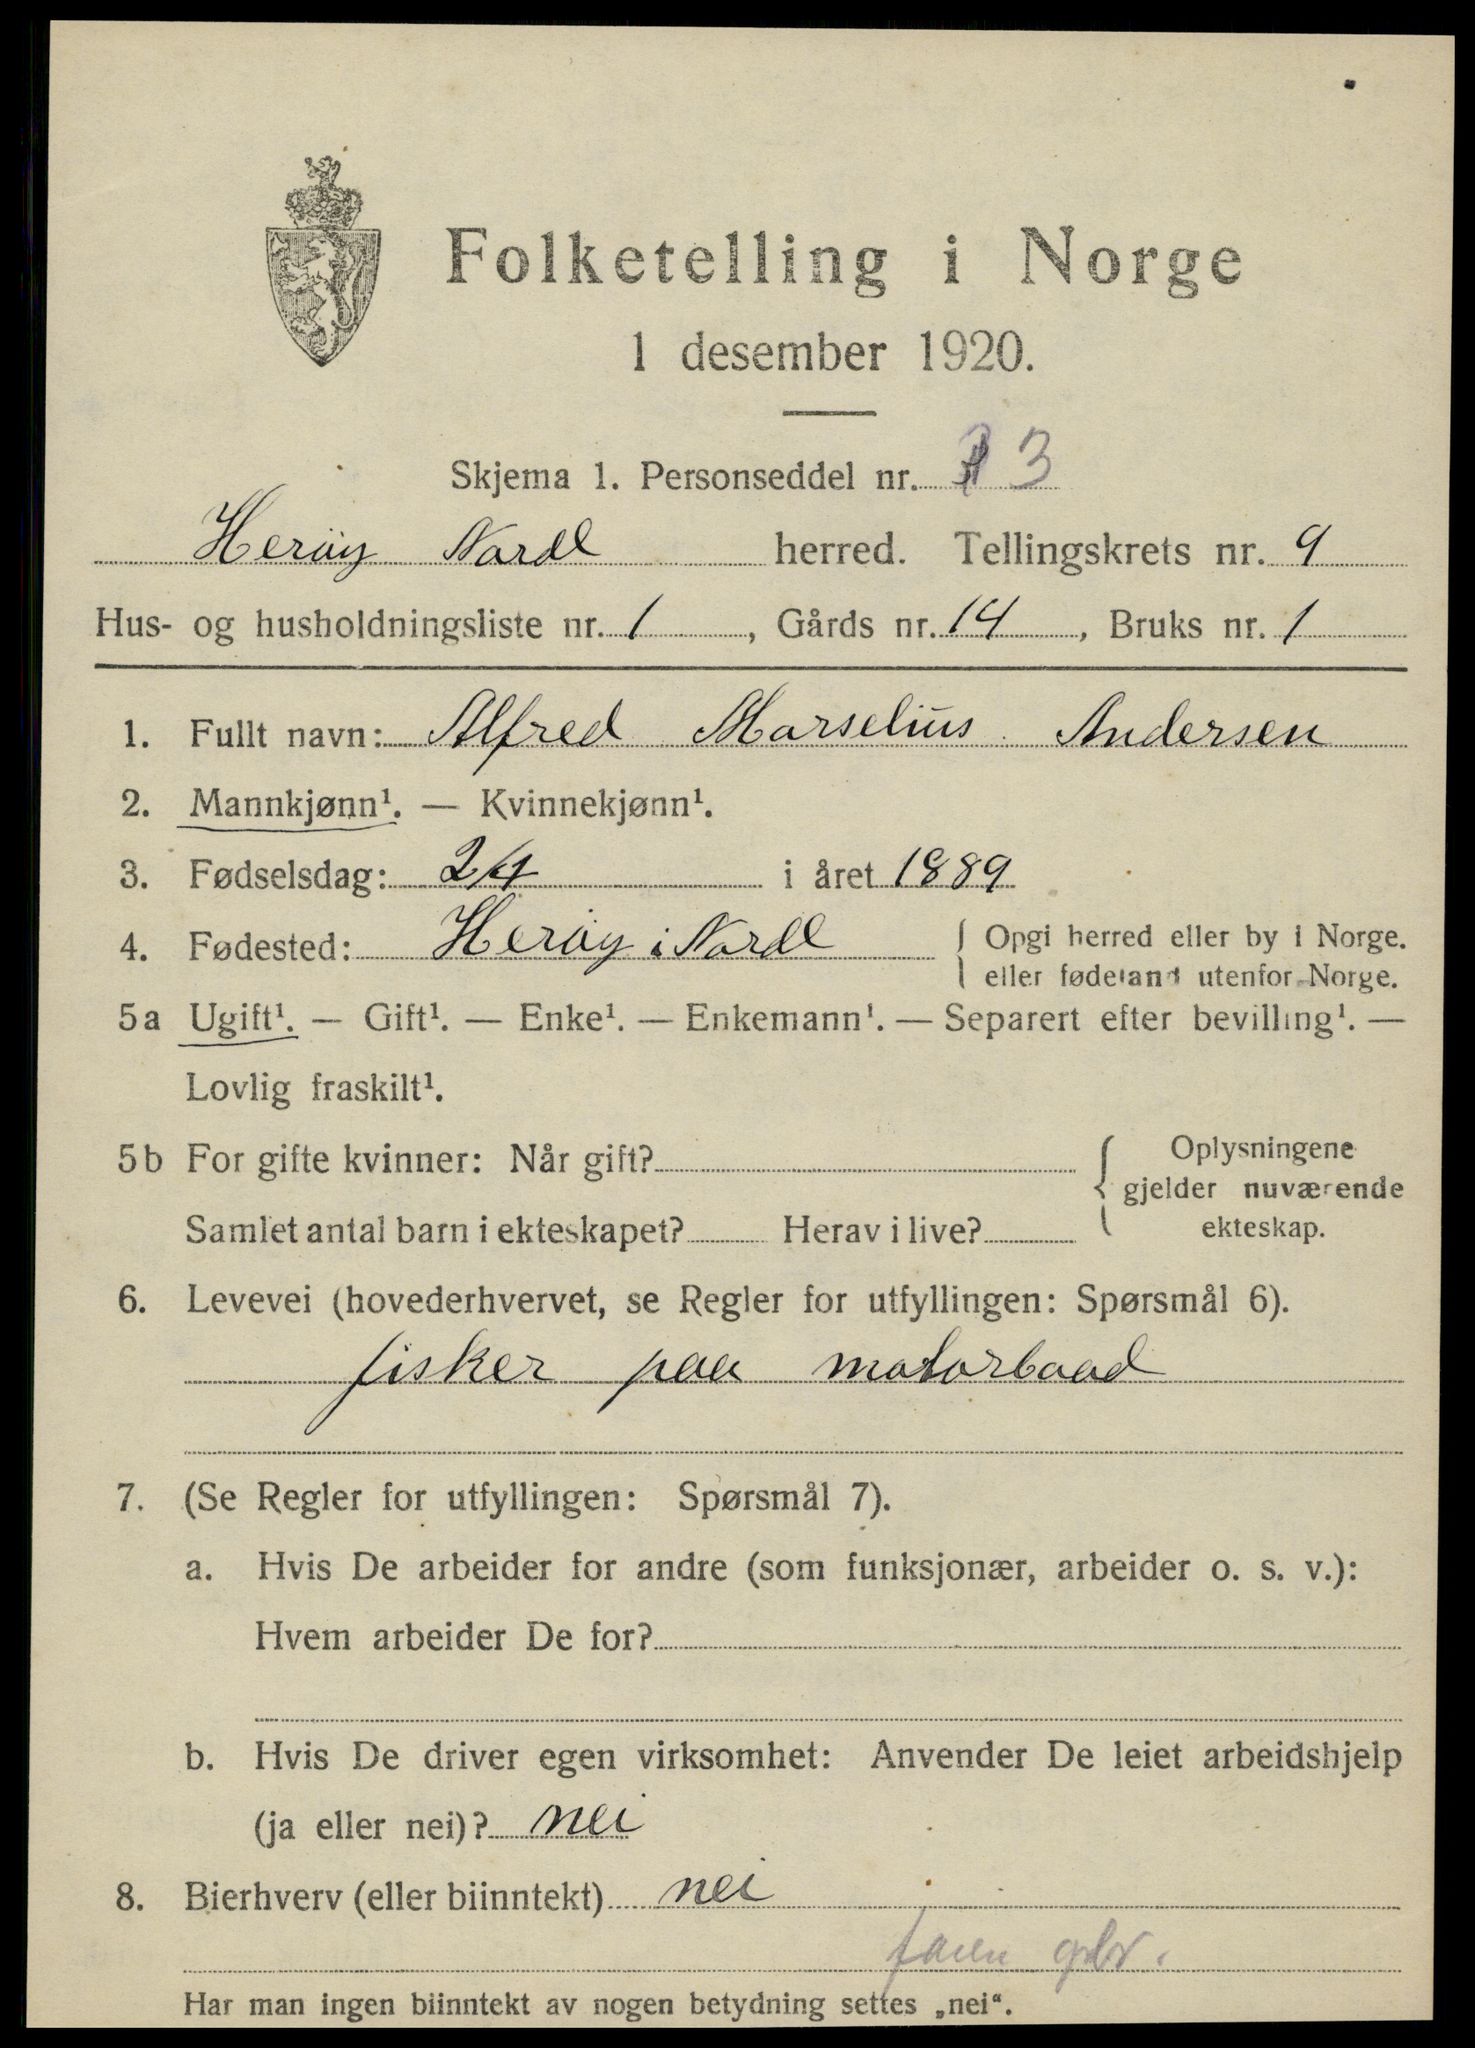 Folketelling i Norge
1 desember 1920.
Skjema 1. Personseddel nr. 3
Herøy Nordl herred. Tellingskrets nr. 9
Hus- og husholdningsliste nr. 1, Gårds nr. 14, Bruks nr. 1
1. Fullt navn: Alfred Marselius Andersen
2. Mannkjønn¹. — Kvinnekjønn¹.
3. Fødselsdag: 2/4 i året 1889
4. Fødested: Herøy i Nordl { Opgi herred eller by i Norge.
eller fødeland utenfor Norge.
5a Ugift¹. — Gift¹. — Enke¹. — Enkemann¹. — Separert efter bevilling¹. —
Lovlig fraskilt¹.
5b For gifte kvinner: Når gift? { Oplysningene
gjelder nuværende
Samlet antal barn i ekteskapet? Herav i live? ekteskap.
6. Levevei (hovederhvervet, se Regler for utfyllingen: Spørsmål 6).
fisker paa motorbaad
7. (Se Regler for utfyllingen: Spørsmål 7).
a. Hvis De arbeider for andre (som funksjonær, arbeider o. s. v.):
Hvem arbeider De for?
b. Hvis De driver egen virksomhet: Anvender De leiet arbeidshjelp
(ja eller nei)? nei
8. Bierhverv (eller biinntekt) nei
faren gbr.
Har man ingen biinntekt av nogen betydning settes „nei“.